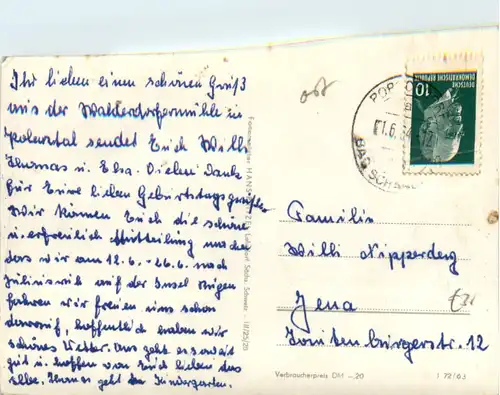 Ihr lieben einen schönen Gruß
aus der Walderdorfermühle in
Polenztal sendet Euch Willi
Thomas u. Elsa. Vielen Dank
für Eure lieben Geburtstagsgrüße
Wir können Euch die schöne
u. erfreulich Mitteilung machen
das wir am 12.6.-26.6. nach
Juliusruh auf der Insel Rügen
fahren wir freuen uns schon
darauf, hoffentlich haben wir
schönes Wetter. Uns geht es soweit
gut u. hoffen von Euch lieben das
selbe. Thomas geht in Kindergarten.
DEUTSCHE
DEMOKRATISCHE REPUBLIK
10
BAD SCHAN
Familie
Willi Nipperdey
Jena
Verbraucherpreis DM -,20
I 72/63